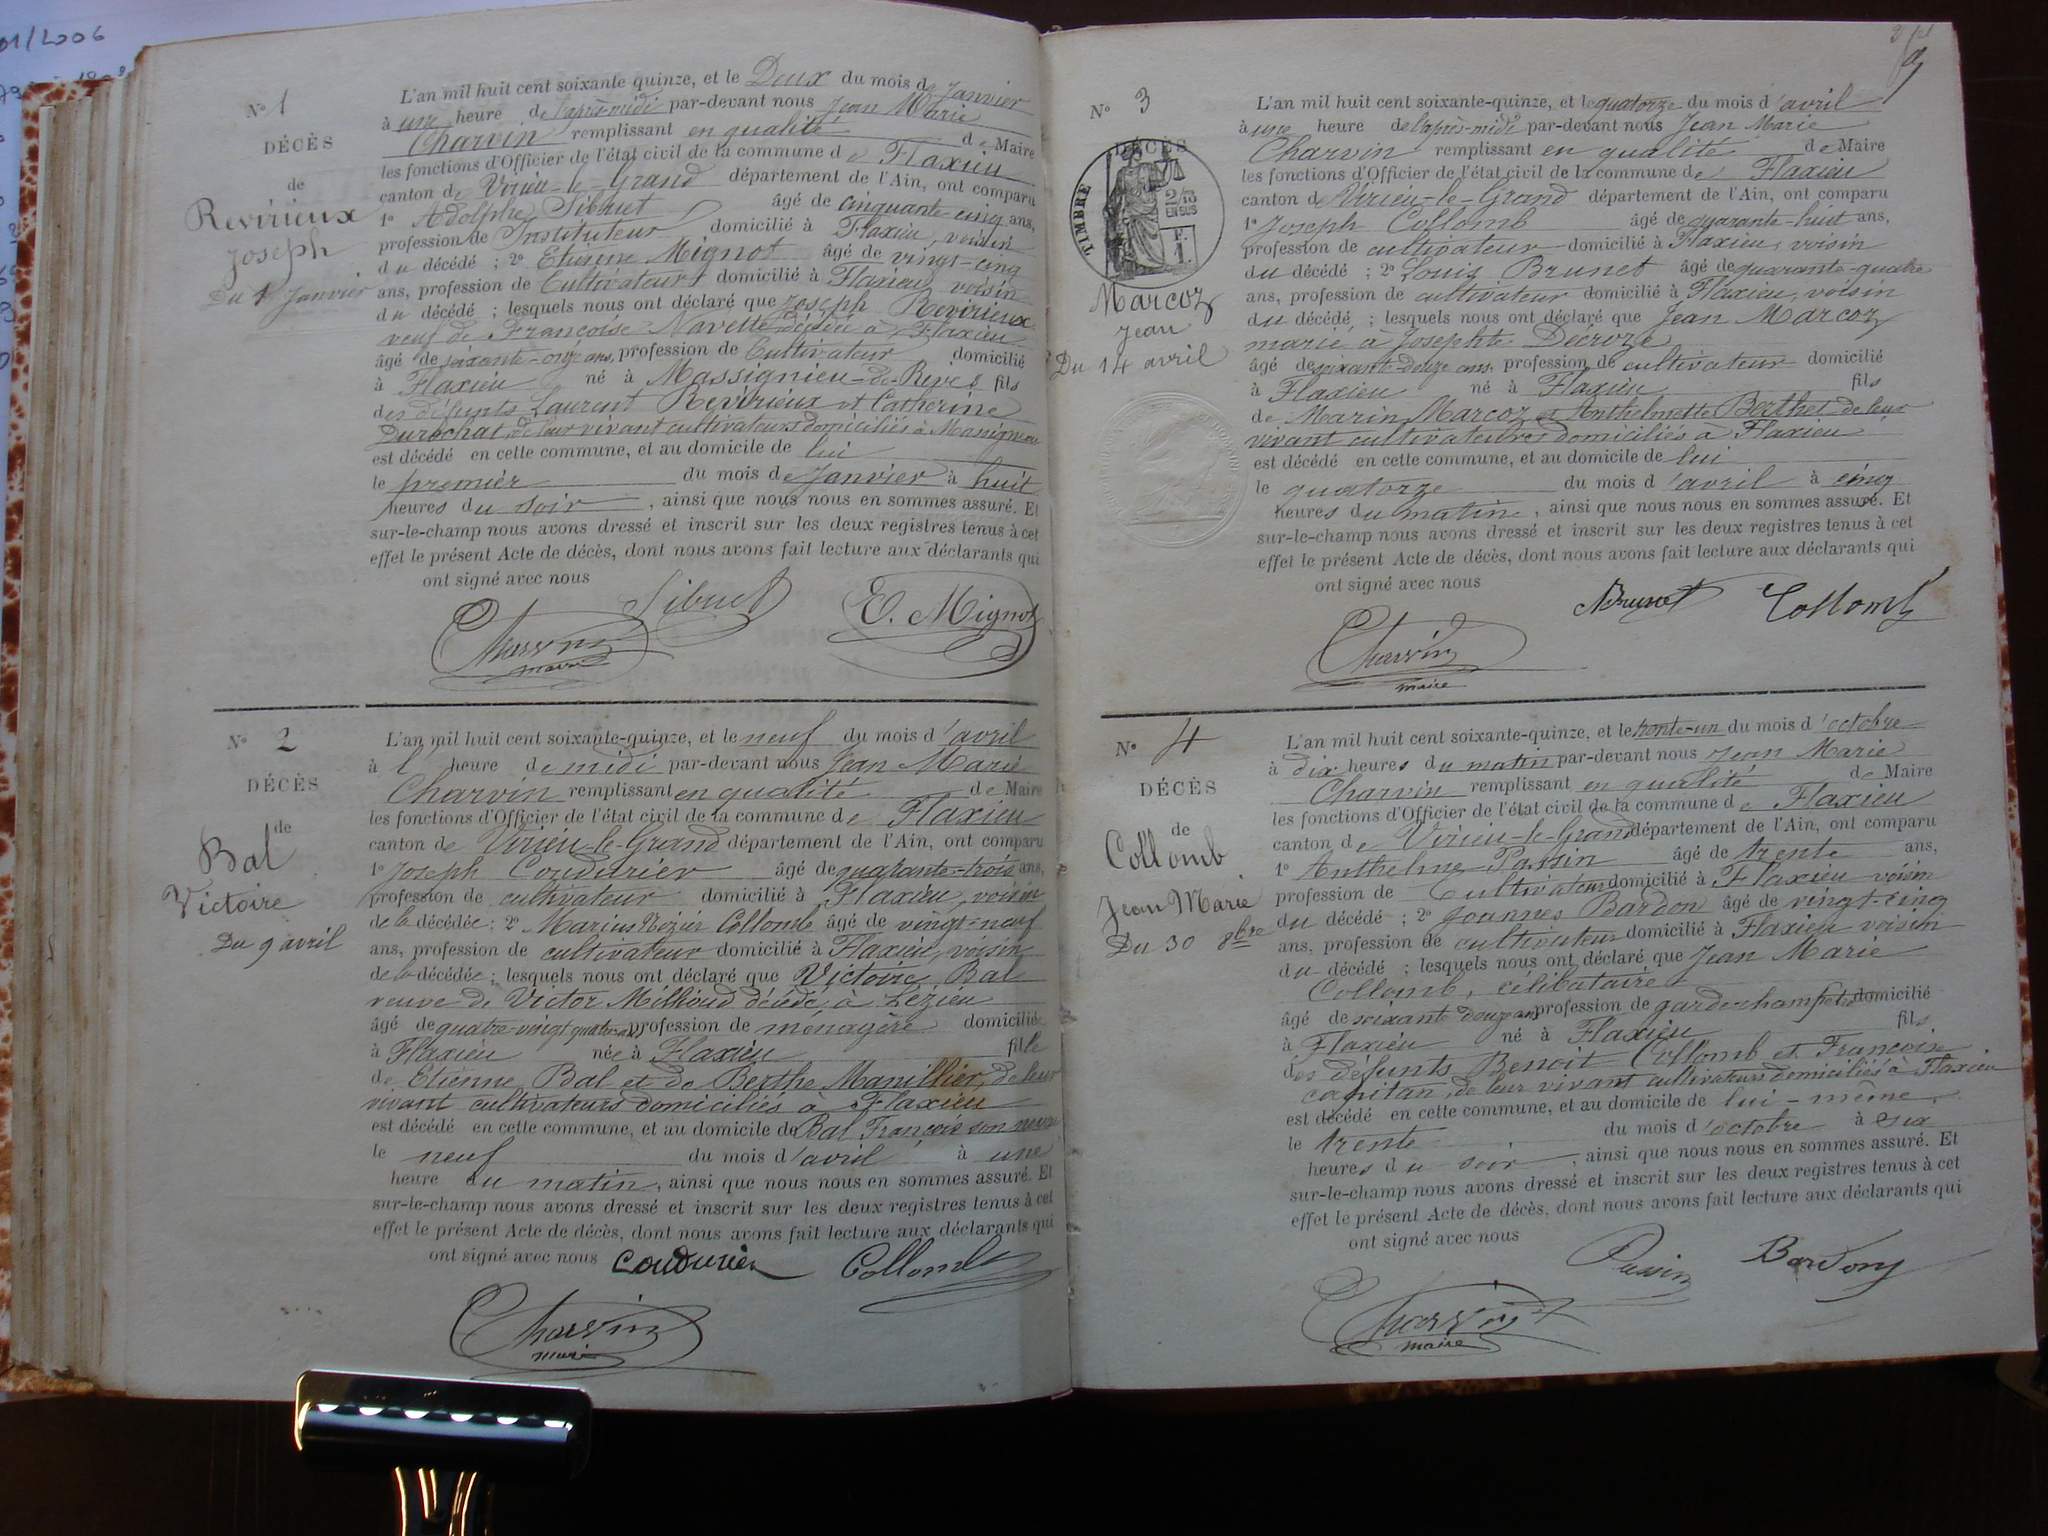 01/2006
N° 1
DÉCÈS
de
Revirieux
Joseph
Du 1er Janvier
L'an mil huit cent soixante quinze, et le Deux du mois de Janvier
à une heure de l'après-midi par-devant nous Jean Marie
Charvin remplissant en qualité de Maire
les fonctions d'Officier de l'état civil de la commune de Flaxieu
canton de Virieu-le-Grand département de l'Ain, ont comparu
1° Adolphe Sibuet âgé de cinquante-cinq ans,
profession de Instituteur domicilié à Flaxieu, voisin
du décédé ; 2° Etienne Mignot âgé de vingt-cinq
ans, profession de Cultivateur domicilié à Flaxieu, voisin
du décédé ; lesquels nous ont déclaré que Joseph Revirieux
veuf de Françoise Navette décédée à Flaxieu
âgé de soixante-onze ans, profession de Cultivateur domicilié
à Flaxieu né à Massignieu-de-Rives fils
des défunts Laurent Revirieux et Catherine
Durochat, de leur vivant cultivateurs domiciliés à Massignieu
est décédé en cette commune, et au domicile de lui
le premier du mois de Janvier à huit
heures du soir, ainsi que nous nous en sommes assuré. Et
sur-le-champ nous avons dressé et inscrit sur les deux registres tenus à cet
effet le présent Acte de décès, dont nous avons fait lecture aux déclarants qui
ont signé avec nous
Sibuet E. Mignot
Charvin
maire
N° 2
DÉCÈS
de
Bal
Victoire
Du 9 avril
L'an mil huit cent soixante-quinze, et le neuf du mois d'avril
à l' heure de midi par-devant nous Jean Marie
Charvin remplissant en qualité de Maire
les fonctions d'Officier de l'état civil de la commune de Flaxieu
canton de Virieu-le-Grand département de l'Ain, ont comparu
1° Joseph Coudurier âgé de quarante-trois ans,
profession de cultivateur domicilié à Flaxieu, voisin
de la décédée ; 2° Marius Collomb âgé de vingt-neuf
ans, profession de cultivateur domicilié à Flaxieu, voisin
de la décédée ; lesquels nous ont déclaré que Victoire Bal
veuve de Victor Milhoud décédé, à Lézieu
âgé de quatre-vingt quatre ans profession de ménagère domiciliée
à Flaxieu née à Flaxieu fille
de Etienne Bal et de Berthe Manillier, de leur
vivant cultivateurs domiciliés à Flaxieu
est décédé en cette commune, et au domicile de Bal François son neveu
le neuf du mois d'avril à une
heure du matin, ainsi que nous nous en sommes assuré. Et
sur-le-champ nous avons dressé et inscrit sur les deux registres tenus à cet
effet le présent Acte de décès, dont nous avons fait lecture aux déclarants qui
ont signé avec nous Coudurier Collomb
Charvin
maire
N° 3
DÉCÈS
TIMBRE
2/10
EN SUS
F.
1.
Marcoz
Jean
Du 14 avril
L'an mil huit cent soixante-quinze, et le quatorze du mois d'avril
à une heure de l'après-midi par-devant nous Jean Marie
Charvin remplissant en qualité de Maire
les fonctions d'Officier de l'état civil de la commune de Flaxieu
canton de Virieu-le-Grand département de l'Ain, ont comparu
1° Joseph Collomb âgé de quarante-huit ans,
profession de cultivateur domicilié à Flaxieu, voisin
du décédé ; 2° Louis Brunet âgé de quarante-quatre
ans, profession de cultivateur domicilié à Flaxieu, voisin
du décédé ; lesquels nous ont déclaré que Jean Marcoz
marié à Josephte Décroze
âgé de soixante-douze ans, profession de cultivateur domicilié
à Flaxieu né à Flaxieu fils
de Marin Marcoz et Anthelmette Berthet de leur
vivant cultivateurs domiciliés à Flaxieu
est décédé en cette commune, et au domicile de lui
le quatorze du mois d'avril à cinq
heures du matin, ainsi que nous nous en sommes assuré. Et
sur-le-champ nous avons dressé et inscrit sur les deux registres tenus à cet
effet le présent Acte de décès, dont nous avons fait lecture aux déclarants qui
ont signé avec nous
Brunet Collomb
Charvin
maire
N° 4
DÉCÈS
de
Collomb
Jean Marie
Du 30 8bre
L'an mil huit cent soixante-quinze, et le trente-un du mois d'octobre
à dix heures du matin par-devant nous Jean Marie
Charvin remplissant en qualité de Maire
les fonctions d'Officier de l'état civil de la commune de Flaxieu
canton de Virieu-le-Grand département de l'Ain, ont comparu
1° Anthelme Passin âgé de trente ans,
profession de Cultivateur domicilié à Flaxieu voisin
du décédé ; 2° Joannes Bardon âgé de vingt-cinq
ans, profession de cultivateur domicilié à Flaxieu voisin
du décédé ; lesquels nous ont déclaré que Jean Marie
Collomb, célibataire
âgé de soixante douze ans profession de garde champêtre domicilié
à Flaxieu né à Flaxieu fils
des défunts Benoit Collomb et Françoise
capitan, de leur vivant cultivateurs domiciliés à Flaxieu
est décédé en cette commune, et au domicile de lui-même,
le trente du mois d'octobre à six
heures du soir, ainsi que nous nous en sommes assuré. Et
sur-le-champ nous avons dressé et inscrit sur les deux registres tenus à cet
effet le présent Acte de décès, dont nous avons fait lecture aux déclarants qui
ont signé avec nous
Passin Bardon
Charvin
maire